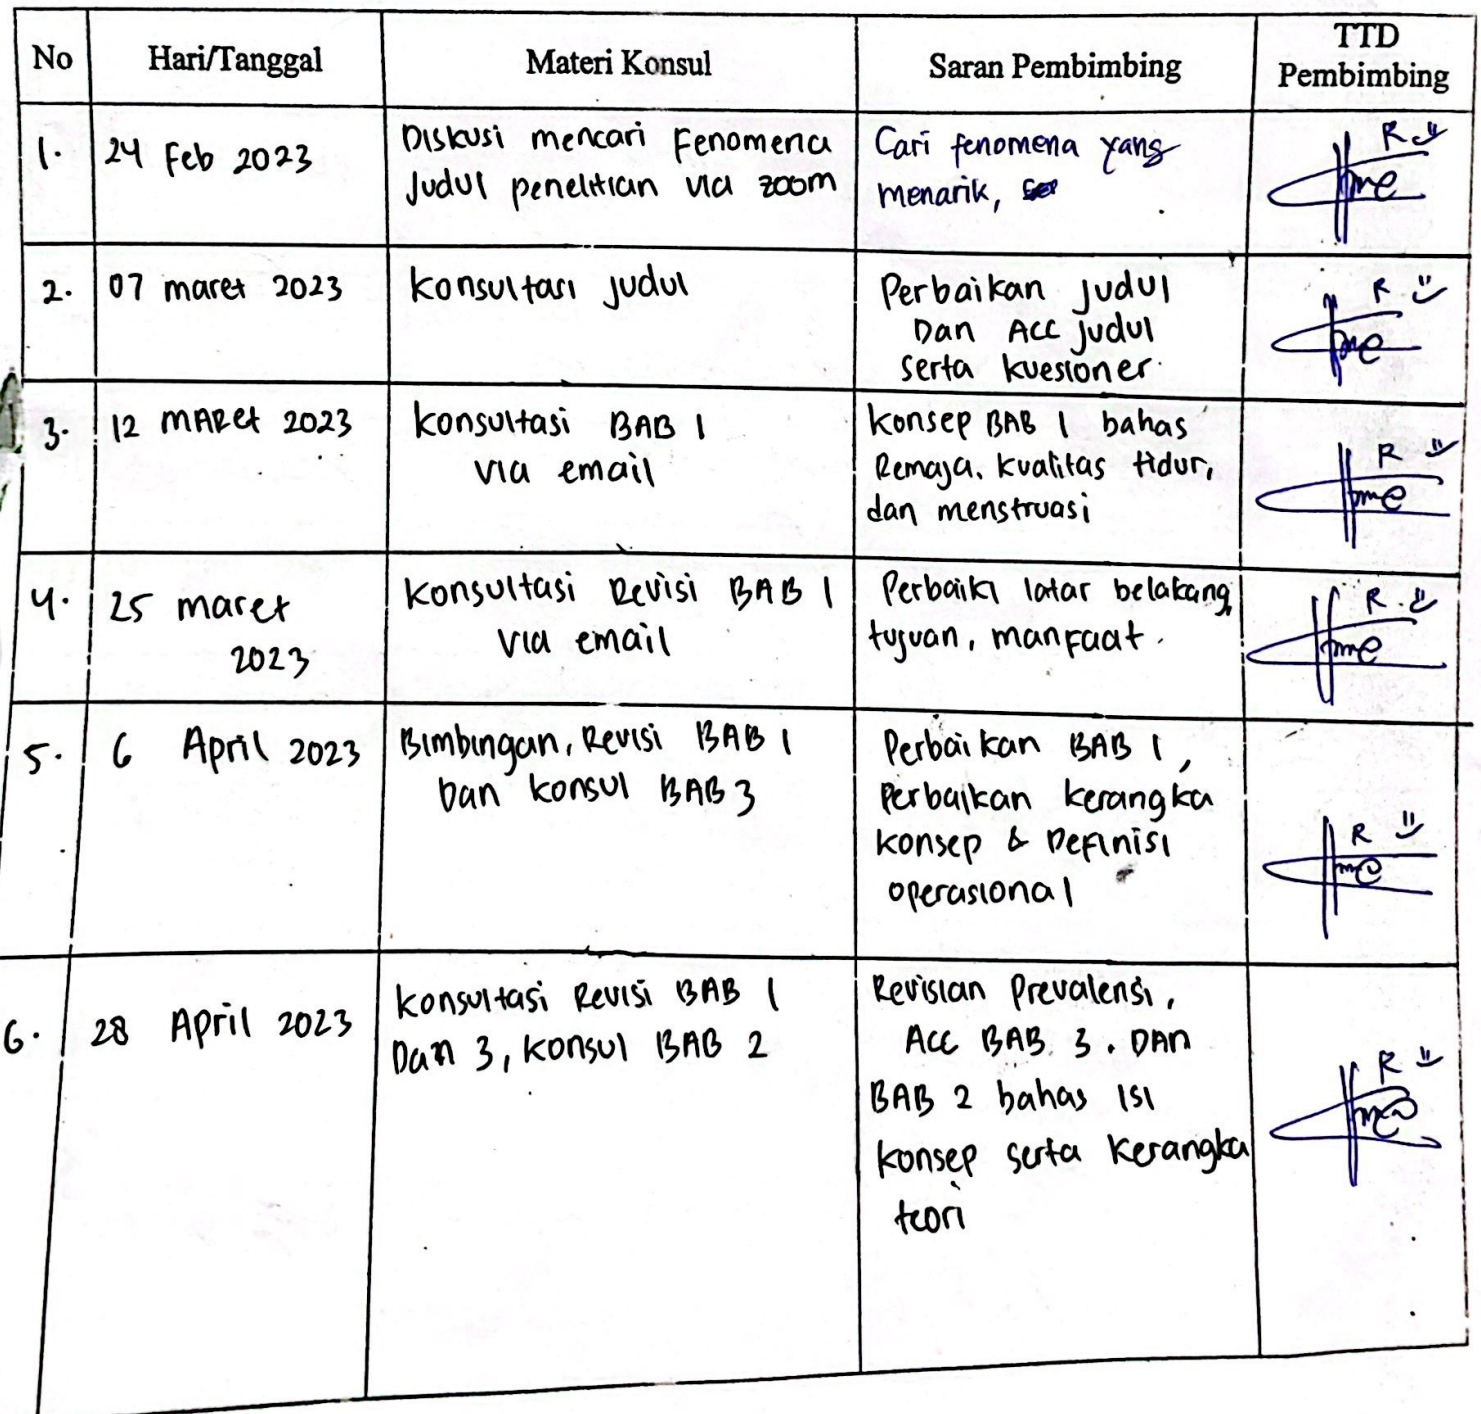 No
Hari/Tanggal
Materi Konsul
Saran Pembimbing
TTD
Pembimbing
1.
24 Feb 2023
Diskusi mencari Fenomena
Judul penelitian via zoom
Cari fenomena yang
menarik,
R
2.
07 maret 2023
Konsultasi judul
Perbaikan judul
Dan ACC judul
serta kuesioner.
R
3.
12 MARet 2023
Konsultasi BAB 1
via email
Konsep BAB 1 bahas
Remaja, kualitas tidur,
dan menstruasi
R
4.
25 maret
2023
Konsultasi Revisi BAB 1
via email
Perbaiki latar belakang,
tujuan, manfaat.
R
5.
6 April 2023
Bimbingan, Revisi BAB 1
Dan konsul BAB 3
Perbaikan BAB 1,
Perbaikan kerangka
konsep & Definisi
operasional
R
6.
28 April 2023
Konsultasi Revisi BAB 1
Dan 3, konsul BAB 2
Revisian Prevalensi,
Acc BAB 3. DAN
BAB 2 bahas ISI
konsep serta kerangka
teori
R